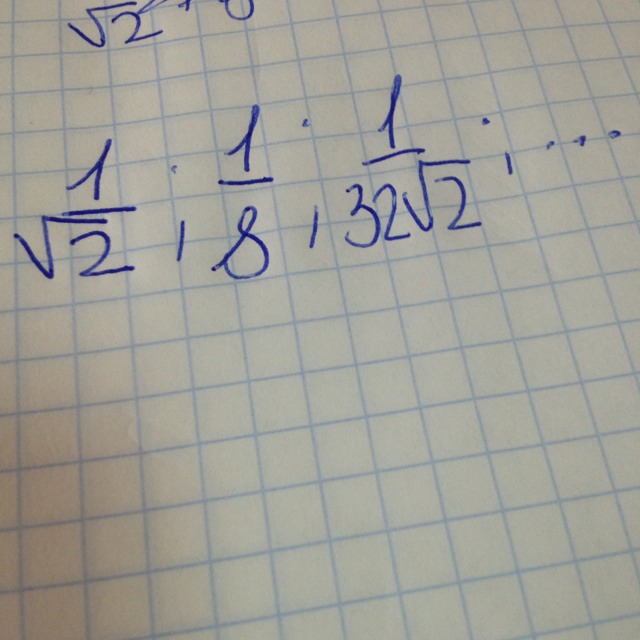 √2
1/√2 ; 1/8 ; 1/32√2 ; ....